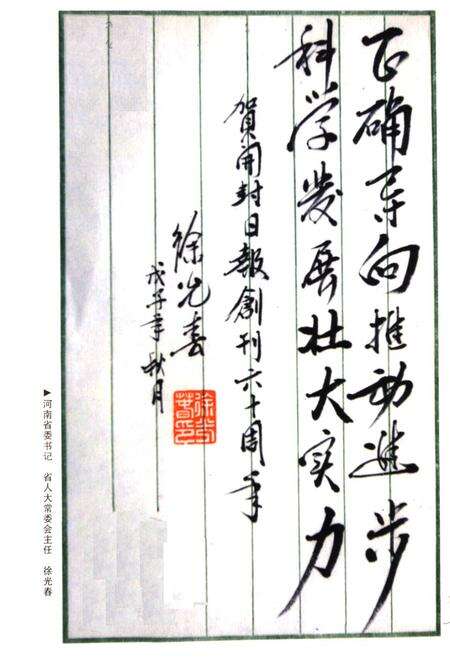 正确导向推动进步
科学发展壮大实力
贺開封日報創刊六十周年
徐光春
戊子年秋月
徐光春印
▶河南省委书记 省人大常委会主任 徐光春